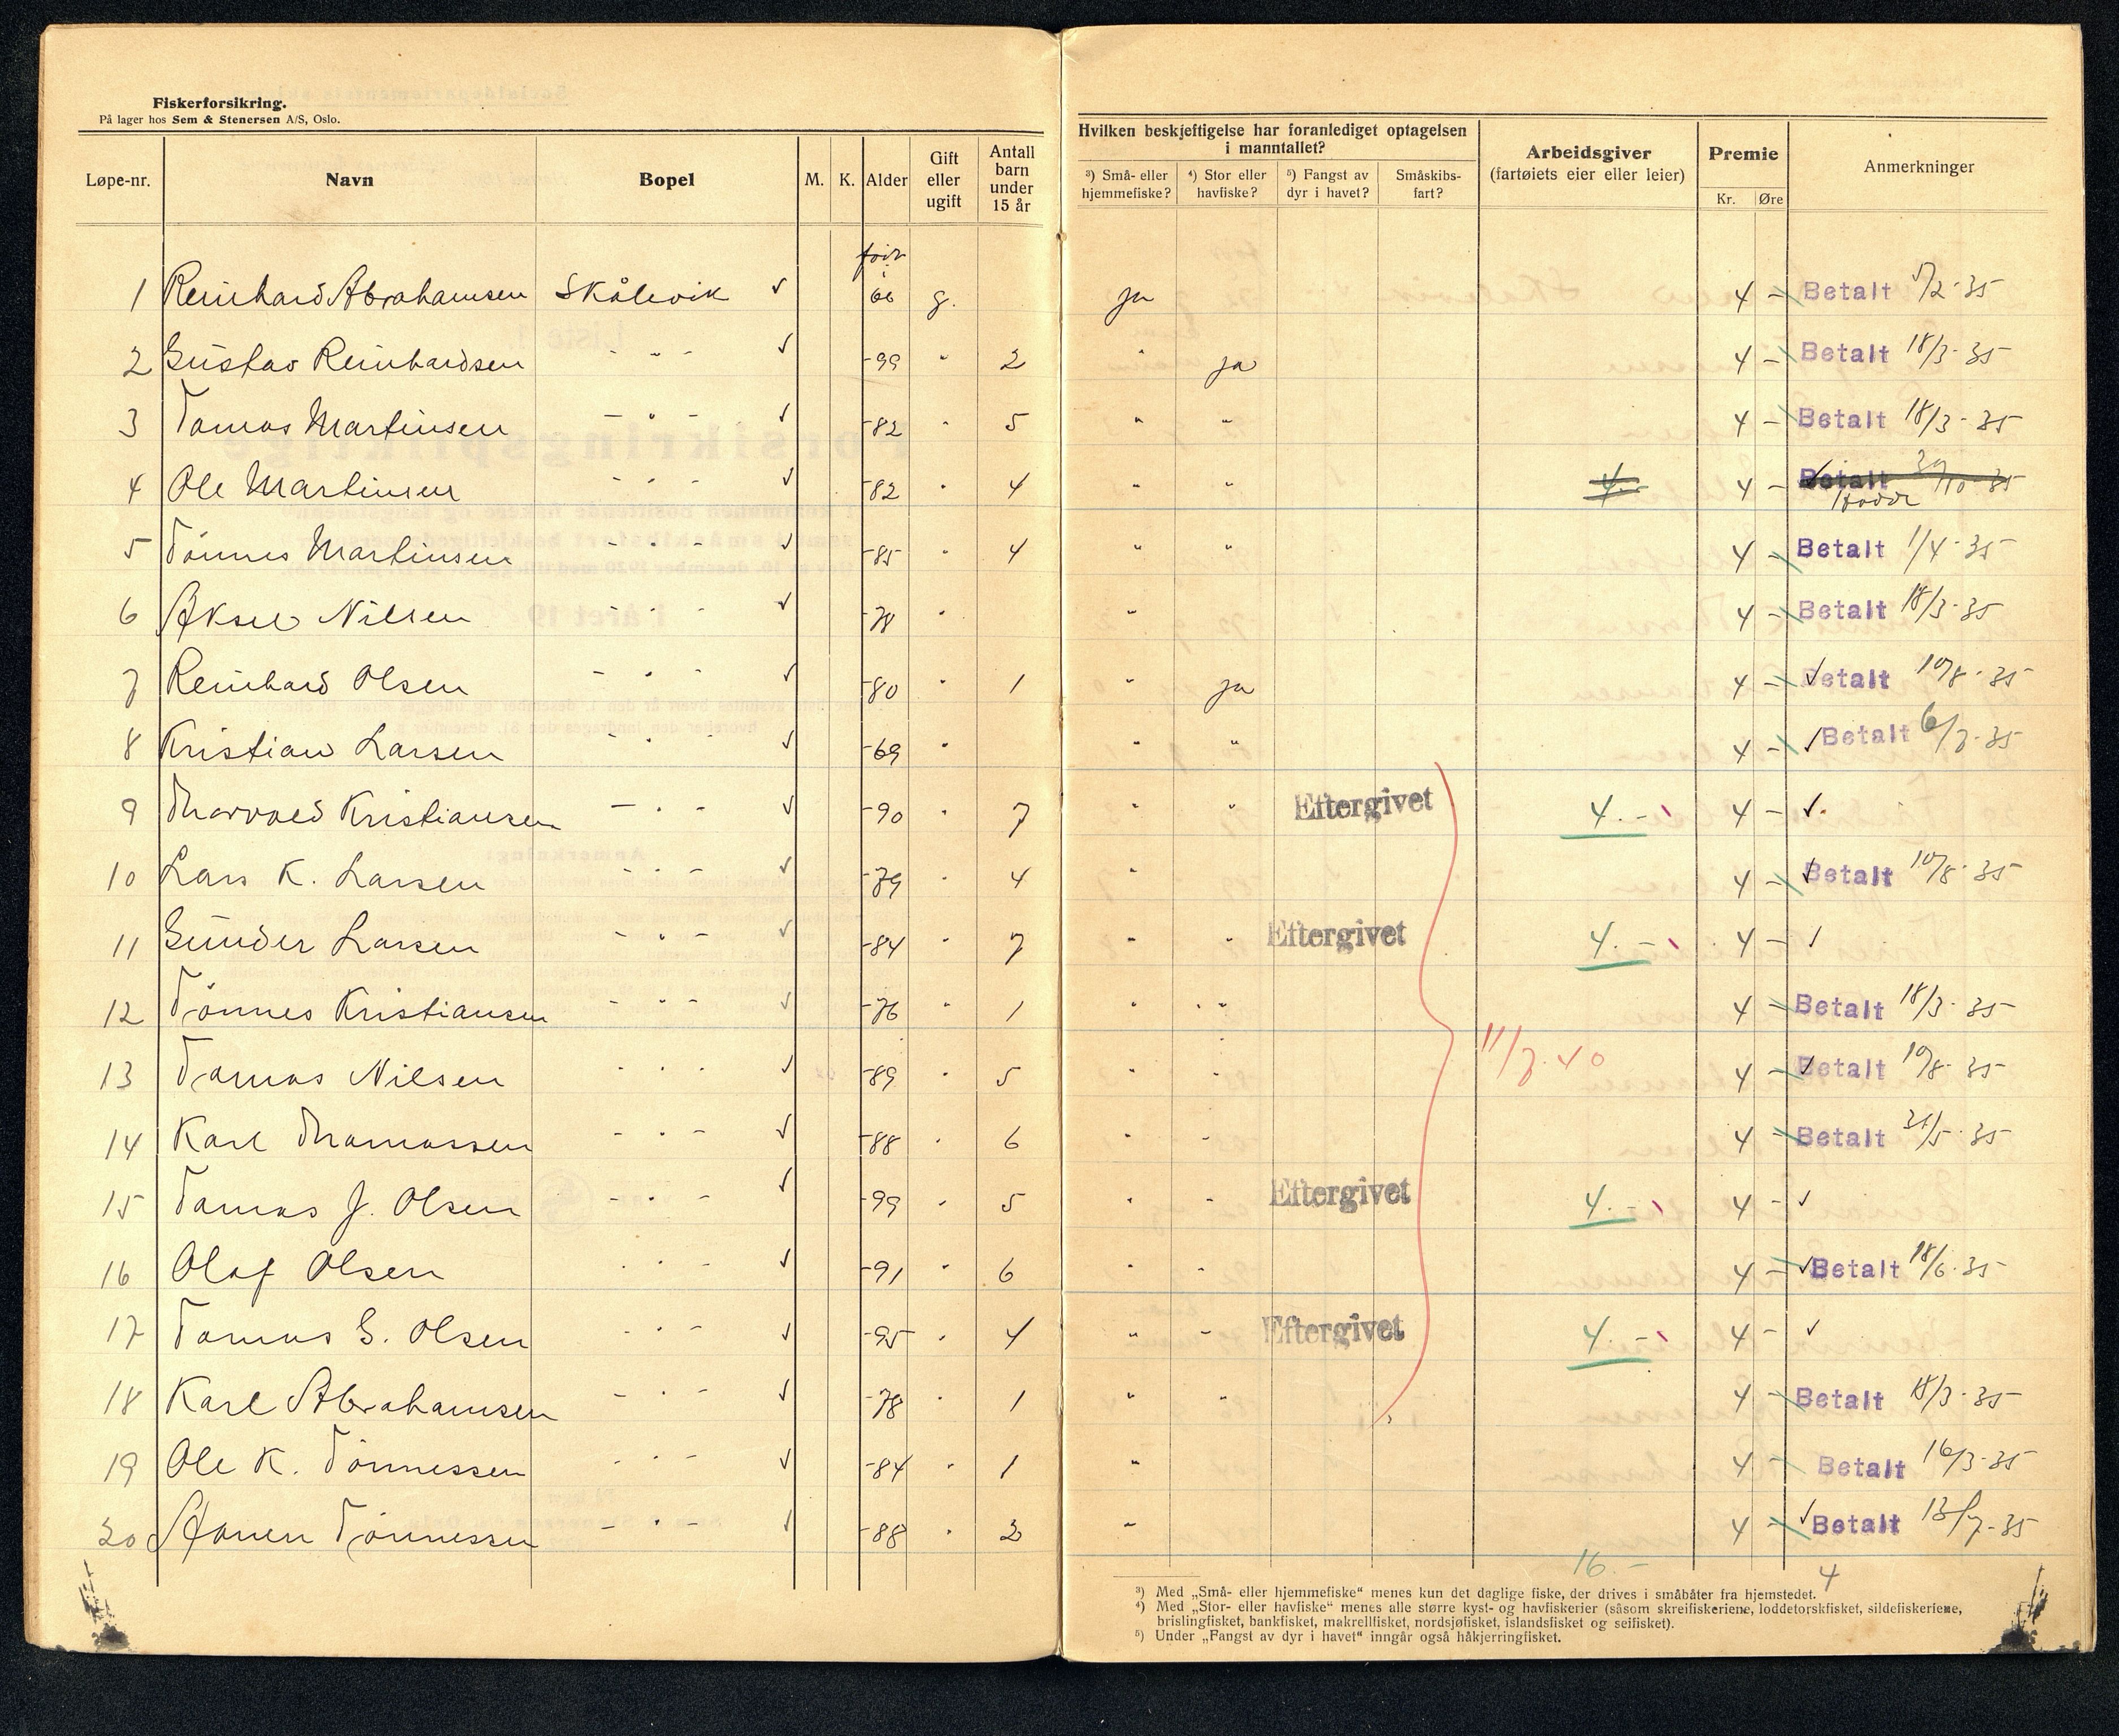 Fiskerforsikring.
På lager hos Sem & Stenersen A/S, Oslo.
Løpe-nr. Navn Bopel M. K. Alder Gift eller ugift Antall barn under 15 år
Hvilken beskjeftigelse har foranlediget optagelsen i manntallet?
³) Små- eller hjemmefiske? ⁴) Stor eller havfiske? ⁵) Fangst av dyr i havet? Småskibs-fart?
Arbeidsgiver (fartøiets eier eller leier) Premie Kr. Øre Anmerkninger
født i
1 Reinhard Abrahamsen Skålevik ✓ 66 g. ja 4 - Betalt 5/2-35
2 Gustav Reinhardsen - " - ✓ -99 " 2 " ja 4 - Betalt 18/3-35
3 Tomas Martinsen - " - ✓ -82 " 5 " " 4 - Betalt 18/3-35
4 Ole Martinsen - " - ✓ -82 " 4 " " 4.- 4 - Betalt /10-35
5 Tønnes Martinsen - " - ✓ -85 " 4 " " 4 - Betalt 1/4-35
6 Aksel Nilsen - " - ✓ -78 " " 4 - Betalt 18/3-35
7 Reinhard Olsen - " - ✓ -80 " 1 " ja 4 - ✓ Betalt 10/8-35
8 Kristian Larsen - " - ✓ -69 " " " 4 - ✓ Betalt 6/7-35
9 Thorvald Kristiansen - " - ✓ -90 " 7 " " Eftergivet 4.- 4 - ✓
10 Lars K. Larsen - " - ✓ -79 " 4 " 4 - ✓ Betalt 10/8-35
11 Gunder Larsen - " - ✓ -84 " 7 " " Eftergivet 4.- 4 - ✓
12 Tønnes Kristiansen - " - ✓ -76 " 1 " " 4 - Betalt 18/3-35
11/7-40
13 Tomas Nilsen - " - ✓ -89 " 5 " " 4 - ✓ Betalt 10/8-35
14 Karl Thomassen - " - ✓ -88 " 6 " " 4 - Betalt 31/5-35
15 Tomas J. Olsen - " - ✓ -99 " 5 " " Eftergivet 4.- 4 - ✓
16 Olaf Olsen - " - ✓ -91 " 6 " " 4 - ✓ Betalt 18/6-35
17 Tomas G. Olsen - " - ✓ -95 " 4 " " Eftergivet 4.- 4 - ✓
18 Karl Abrahamsen - " - ✓ -78 " 1 " " 4 - Betalt 18/3-35
19 Ole K. Tønnessen - " - ✓ -84 " 1 " 4 - Betalt 16/3-35
20 Tønnessen - " - ✓ -88 " 2 " 4 - ✓ Betalt 13/7-35
16.- 4
³) Med „Små- eller hjemmefiske“ menes kun det daglige fiske, der drives i småbåter fra hjemstedet.
⁴) Med „Stor- eller havfiske“ menes alle større kyst- og havfiskerier (såsom skreifiskeriene, loddetorskfisket, sildefiskeriene,
brislingfisket, bankfisket, makrellfisket, nordsjøfisket, islandsfisket og seifisket).
⁵) Under „Fangst av dyr i havet“ inngår også håkjerringfisket.